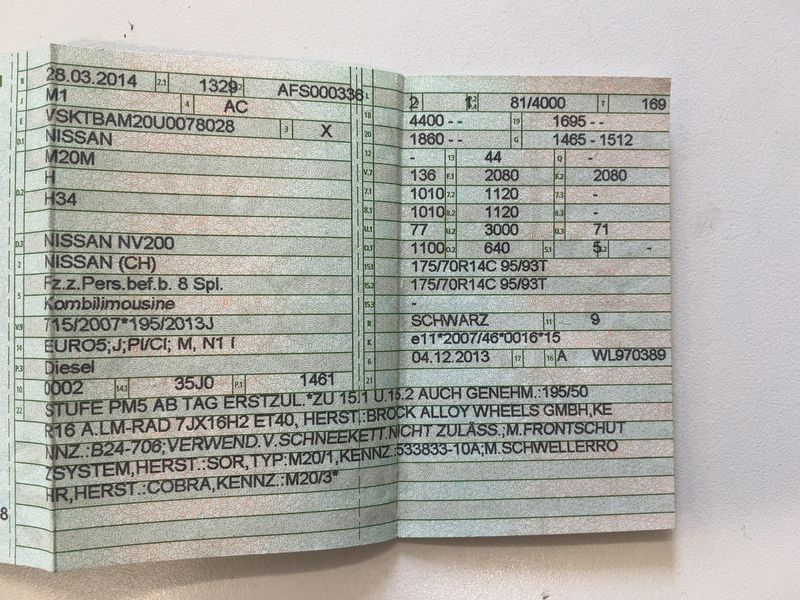 B 28.03.2014 2.1 1329 2.2 AFS000336
J M1 4 AC
E VSKTBAM20U0078028 3 X
D.1 NISSAN
M20M
D.2 H
H34
D.3 NISSAN NV200
2 NISSAN (CH)
5 Fz.z.Pers.bef.b. 8 Spl.
Kombilimousine
V.9 715/2007*195/2013J
14 EURO5;J;PI/CI; M, N1 I
P.3 Diesel
10 0002 14.1 35J0 P.1 1461
L 2 9 1 P.2 P.4 81/4000 T 169
18 4400 - - 19 1695 - -
20 1860 - - G 1465 - 1512
12 - 13 44 Q -
V.7 136 F.1 2080 F.2 2080
7.1 1010 7.2 1120 7.3 -
8.1 1010 8.2 1120 8.3 -
U.1 77 U.2 3000 U.3 71
O.1 1100 O.2 640 S.1 5 S.2 -
15.1 175/70R14C 95/93T
15.2 175/70R14C 95/93T
15.3 -
R SCHWARZ 11 9
K e11*2007/46*0016*15
6 04.12.2013 17 16 A WL970389
21
22 STUFE PM5 AB TAG ERSTZUL.*ZU 15.1 U.15.2 AUCH GENEHM.:195/50
R16 A.LM-RAD 7JX16H2 ET40, HERST.:BROCK ALLOY WHEELS GMBH,KE
NNZ.:B24-706;VERWEND.V.SCHNEEKETT.NICHT ZULÄSS.;M.FRONTSCHUT
ZSYSTEM,HERST.:SOR,TYP:M20/1,KENNZ.:533833-10A;M.SCHWELLERRO
HR,HERST.:COBRA,KENNZ.:M20/3*
8